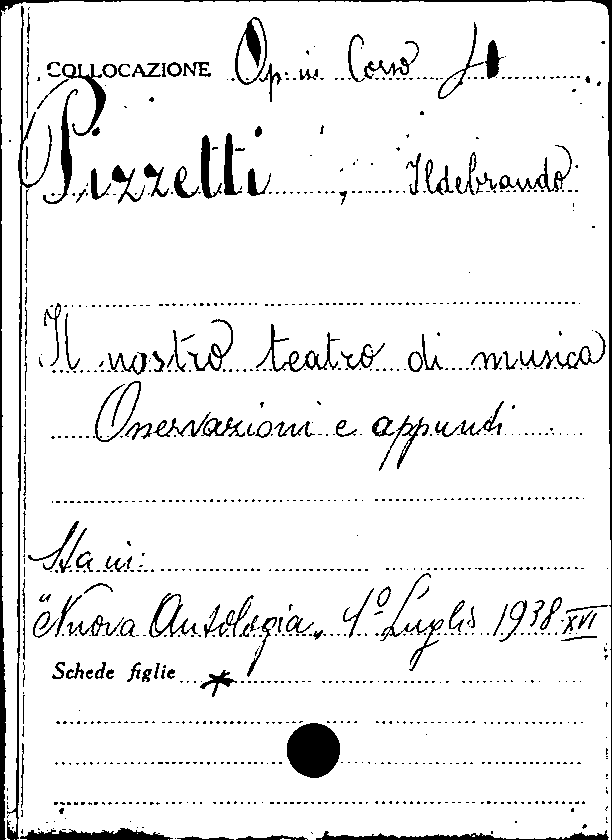 COLLOCAZIONE Op. in Corso
Pizzetti, Ildebrando
Il nostro teatro di musica
Osservazioni e appunti
Sta in:
"Nuova Antologia„ 1º Luglio 1938 XVI
Schede figlie *